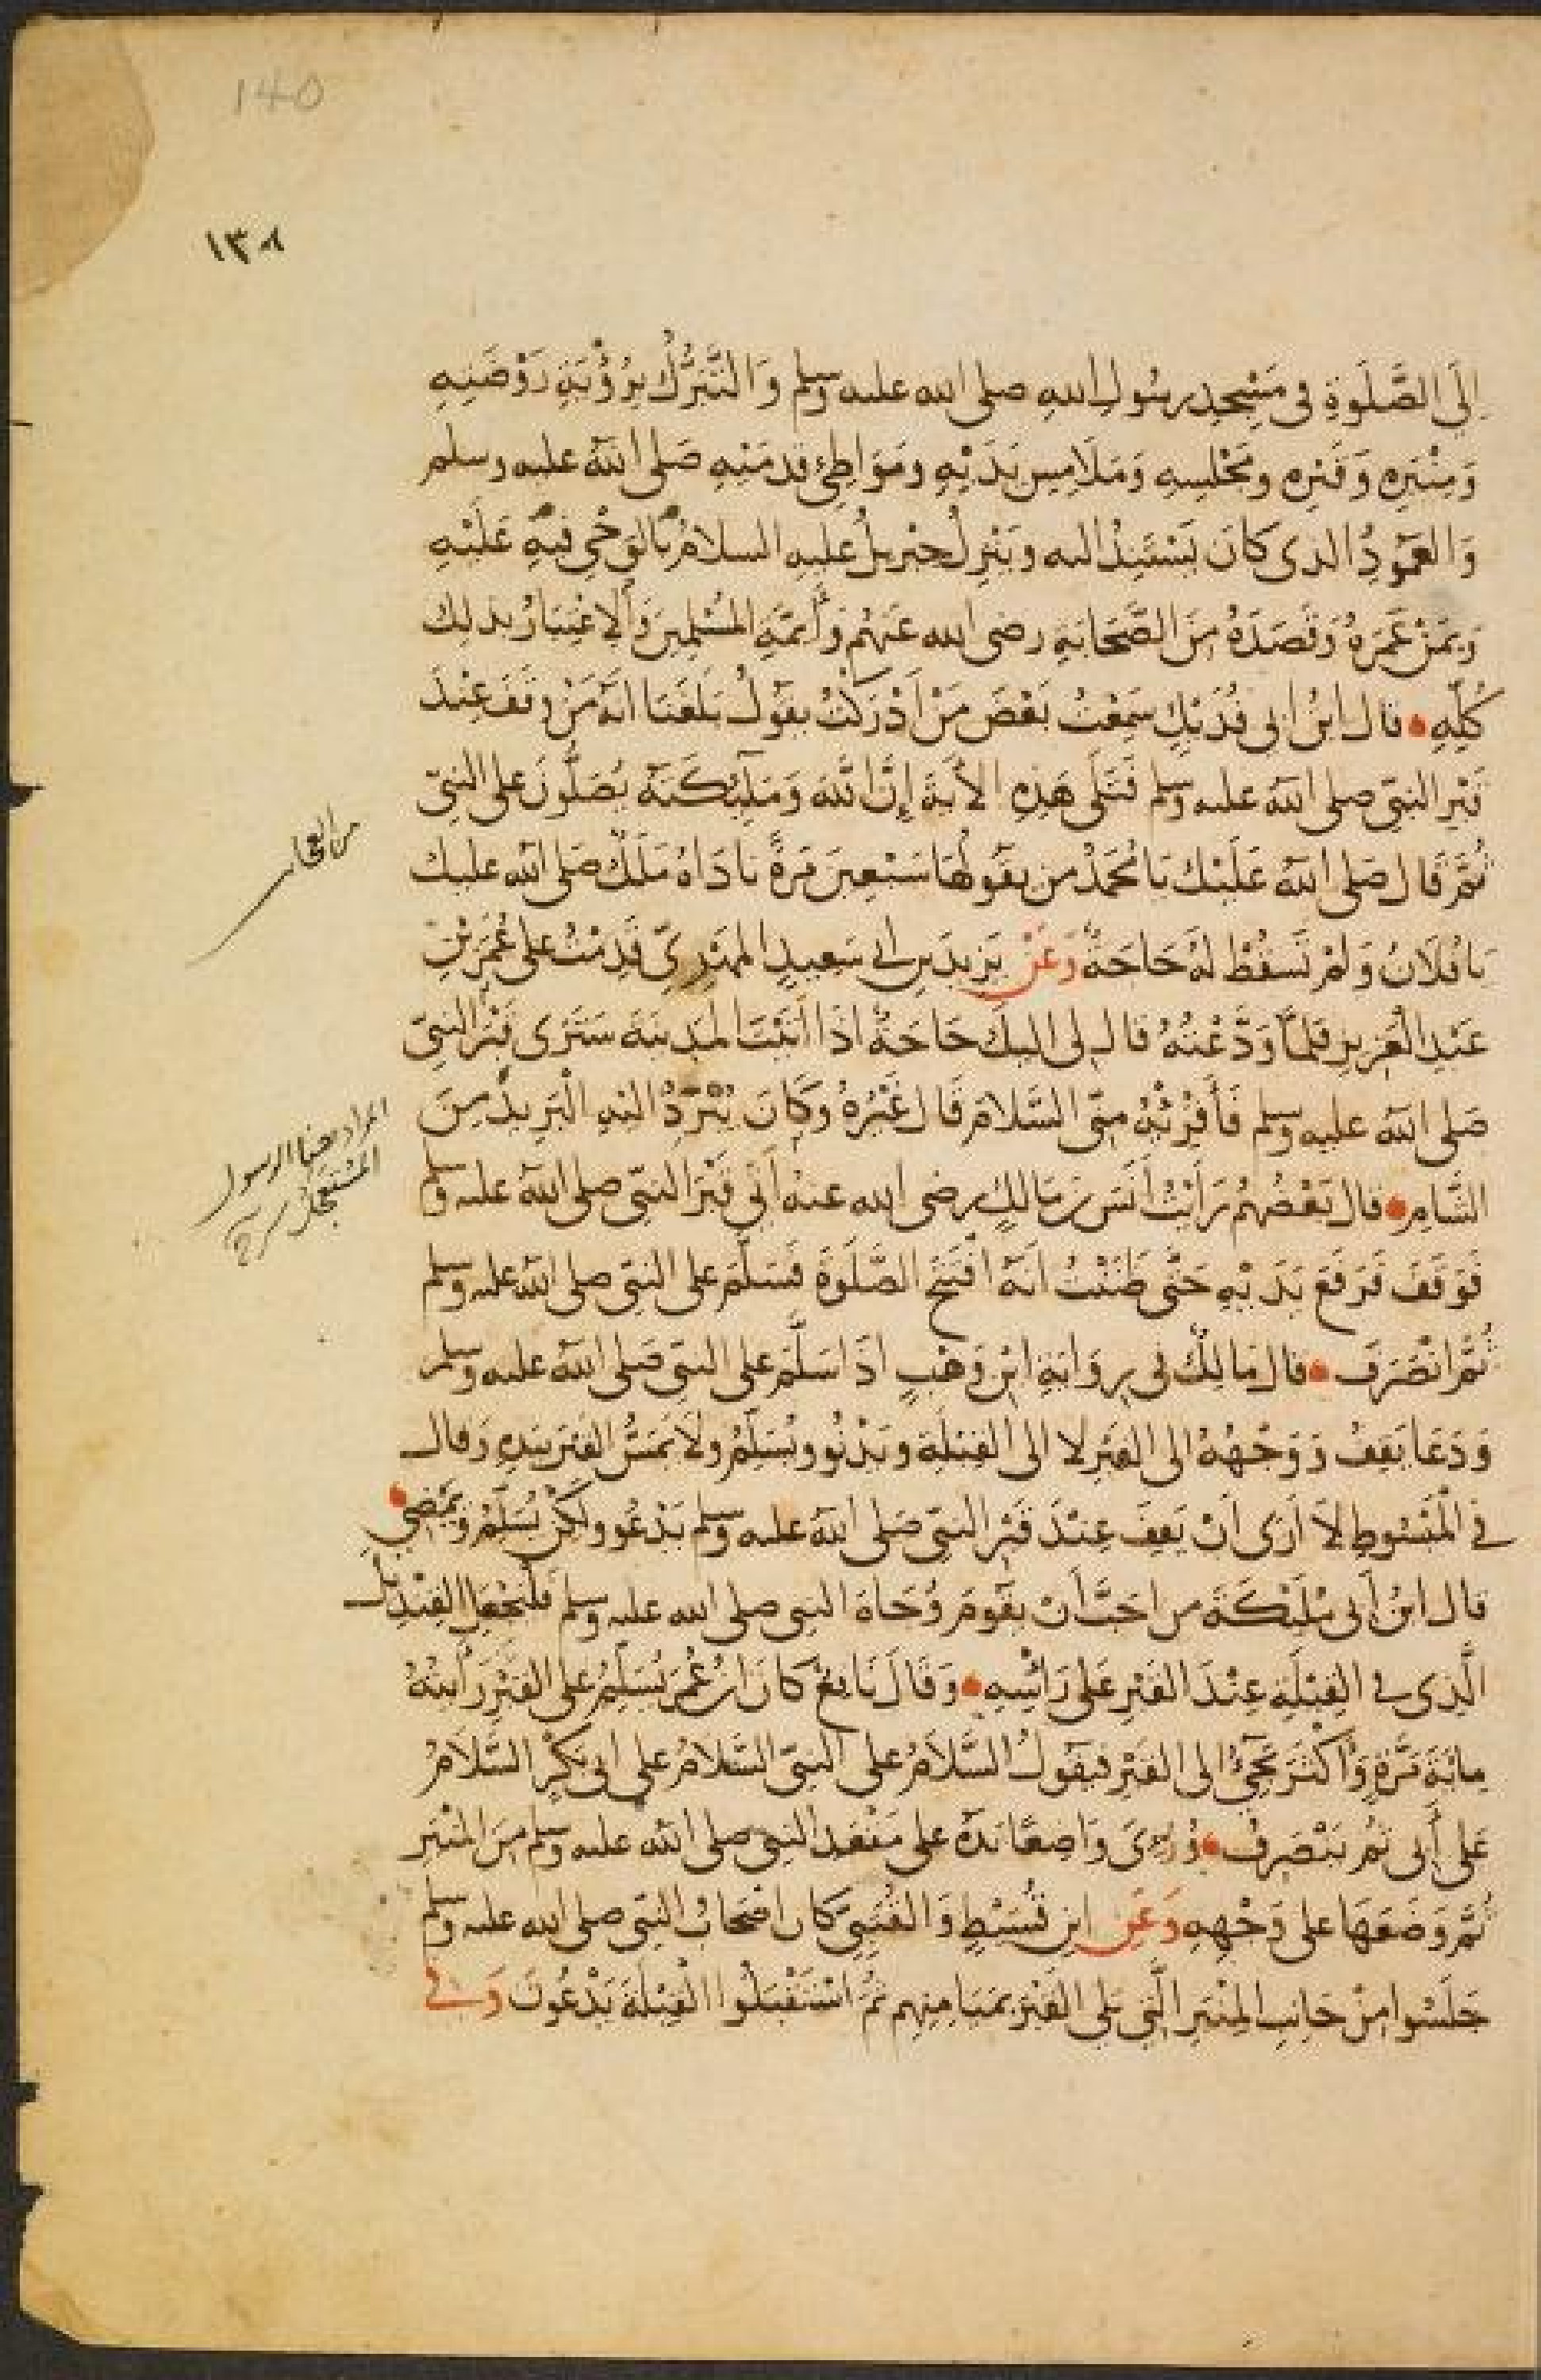 140
١٣٨
إِلَى الصَّلَوةِ فى مَسْجِدِ رسُولِ اللهِ صلى الله عليه وسلم وَالتَّبَرُّكُ بِرُؤْيَةِ رَوْضَتِهِ
وَمِنْبَرِهِ وَقَبْرِهِ ومَجْلِسِهِ وَمَلَامِسِ يَدَيْهِ ومَوَاطِئِ قدمَيْهِ صَلى اللهُ عليه وسلم
وَالعَمُودِ الذى كانَ يَسْتَنِدُ اليه وينْزِلُ جبْريلُ عليهِ السلامُ بالوَحْىِ فيهِ عَلَيْهِ
وَبمَنْ عَمَرَهُ وَقَصَدَهُ مِنَ الصَّحَابَةِ رضى الله عَنهُم وَأَئمَّةِ المُسْلِمِينَ وَالِاعْتِبَارُ بذلِكَ
كُلِّهِ قال ابنُ ابى فُدَيْكٍ سَمِعْتُ بَعْضَ مَنْ اَدْرَكْتُ يقولُ بَلَغَنَا انّهُ مَنْ وقَفَ عِنْدَ
قَبْرِ النبىّ صلى اللهُ عليه وسلم فَتَلَى هَذِهِ الأيَةَ إِنَّ اللَّهَ وَمَلٰئِكَتَهُ يُصَلُّونَ على النبىّ
ثُمَّ قَالَ صَلى اللهُ عَلَيْكَ يَا مُحَمَّدُ من يقُولُهَا سَبْعِينَ مَرةً نادَاهُ مَلَكٌ صَلى الله عليك
يَا فُلَانُ وَلَمْ تَسقُطْ لَهُ حَاجَةٌ وَعَنْ يَزِيدَ بنِ ابى سَعِيدٍ المَهْرِىِّ قَدِمْتُ على عُمَرَ بْنِ
عَبْدِ العَزِيزِ فَلَمَّا وَدَّعْتُهُ قالَ لِى اليكَ حَاجَةٌ اذَا اَتَيْتَ المَدِينَةَ سَتَرَى قَبْرَ النبىّ
صَلى اللهُ عليهِ وسلم فَأَقْرِئْهُ مِنّى السَّلامَ قَالَ غَيْرُهُ وكَانَ يُبْرِدُ اليهِ الْبَرِيدَ مِنَ
الشَّامِ قال بَعْضُهُم رَأَيْتُ أنَسَ بنَ مَالِكٍ رضى الله عنه أتى قَبْرَ النبىّ صلى اللهُ عليه وسلم
فَوَقَفَ فَرَفَعَ يَدَيْهِ حَتَّى ظَنَنْتُ اَنَّهُ افْتَتَحَ الصَّلَوةَ فَسَلَّمَ على النبىّ صلى اللهُ عليه وسلم
ثُمَّ انْصَرَفَ قال مَالِكٌ فى رِوَايَةِ ابْنِ وَهْبٍ اذَا سَلَّمَ على النبىّ صَلى اللهُ عليه وسلم
وَدَعَا يَقِفُ وَوَجْهُهُ الى القَبْرِ لا الى القِبْلَةِ ويَدْنُو ويُسَلِّمُ ولَا يَمَسُّ القَبْرَ بيَدِهِ وَقالَ
فى الْمَبْسُوطِ لَا اَرَى اَنْ يَقِفَ عِنْدَ قَبْرِ النبىّ صَلى اللهُ عليه وسلم يَدْعُو ولَكِنْ يُسَلِّمُ وَيَمْضِى
قال ابنُ أَبى مُلَيْكَةَ من احَبَّ اَن يقُومَ وُجَاهَ النبى صلى الله عليه وسلم فَلْيَجْعَلِ القِنْدِيلَ
الَّذِى فى القِبْلَةِ عِنْدَ القَبْرِ عَلى رَاسِهِ وَقَالَ نَافِعٌ كانَ ابْنُ عُمَرَ يُسَلِّمُ على القَبْرِ رَأيتُهُ
مِائَةَ مَرَّةٍ وَأَكْثَرَ يَجِىءُ الى القَبْرِ فيقُولُ السَّلَامُ على النبىّ السَّلامُ على ابى بَكْرٍ السَّلَامُ
عَلى أَبى ثم يَنْصَرِفُ وَرُئِىَ وَاضِعًا يَدَهُ على مَقْعَدِ النبى صلى اللهُ عليه وسلم مِنَ المنْبَرِ
ثُمَّ وَضَعَهَا على وَجْهِهِ وَعَنِ ابنِ قُسَيْطٍ وَالعُتْبِىّ كانَ اصْحَابُ النبىّ صلى الله عليه وسلم
جَلَسُوا مِنْ جَانِبِ المِنْبَرِ الَّتِى تَلِى القَبْرَ بمَيَامِنِهِم ثُمَّ اسْتَقْبَلُوا القِبْلَةَ يَدْعُونَ وَفى
المراد هنا الرسول
المستعجل